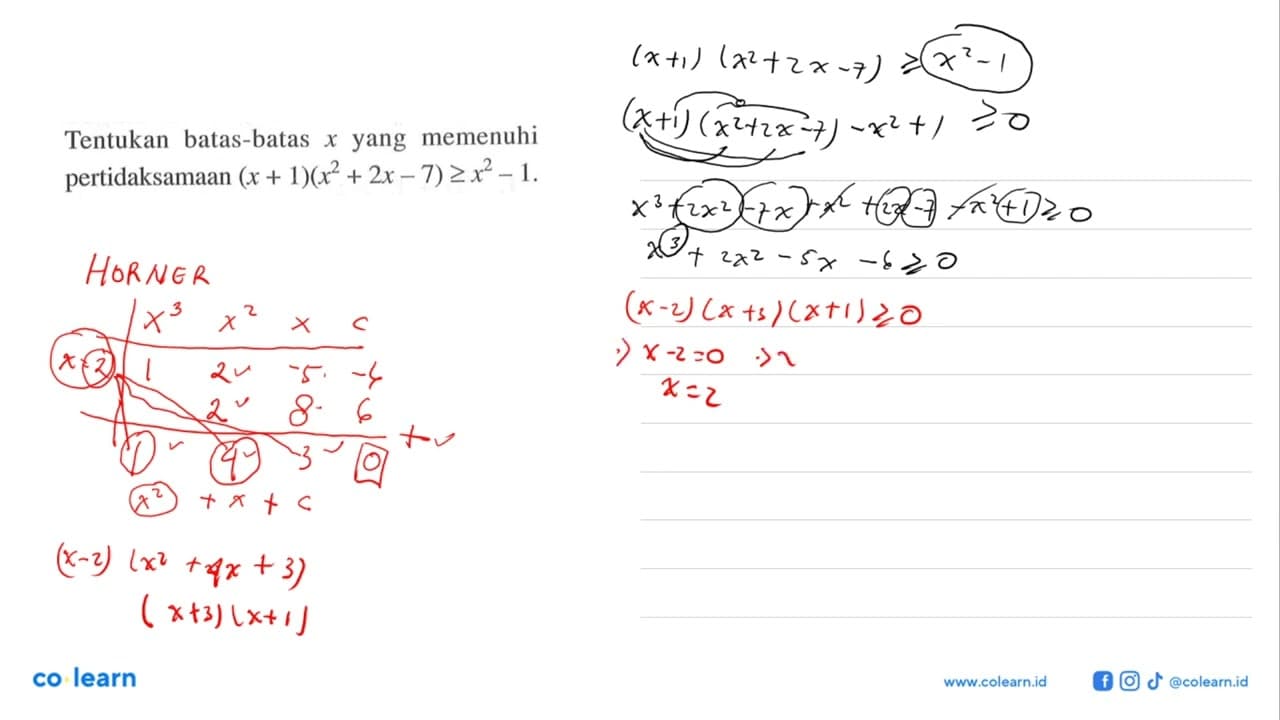 Tentukan batas-batas x yang memenuhi
pertidaksamaan (x + 1)(x² + 2x – 7) ≥ x² – 1.
HORNER
x³ x² x c
x=2 1 2 -5 -6
2 8 6
+
1 4 3 0
x² + x + c
(x-2) (x² + 4x + 3)
(x+3)(x+1)
(x+1) (x²+2x-7) ≥ x²-1
(x+1)(x²+2x-7) -x²+1 ≥0
x³+2x²-7x+x²+2x-7-x²+1≥0
x³+ 2x²-5x-6≥0
(x-2)(x+3)(x+1)≥0
x-2=0
x=2
co learn
www.colearn.id
@colearn.id